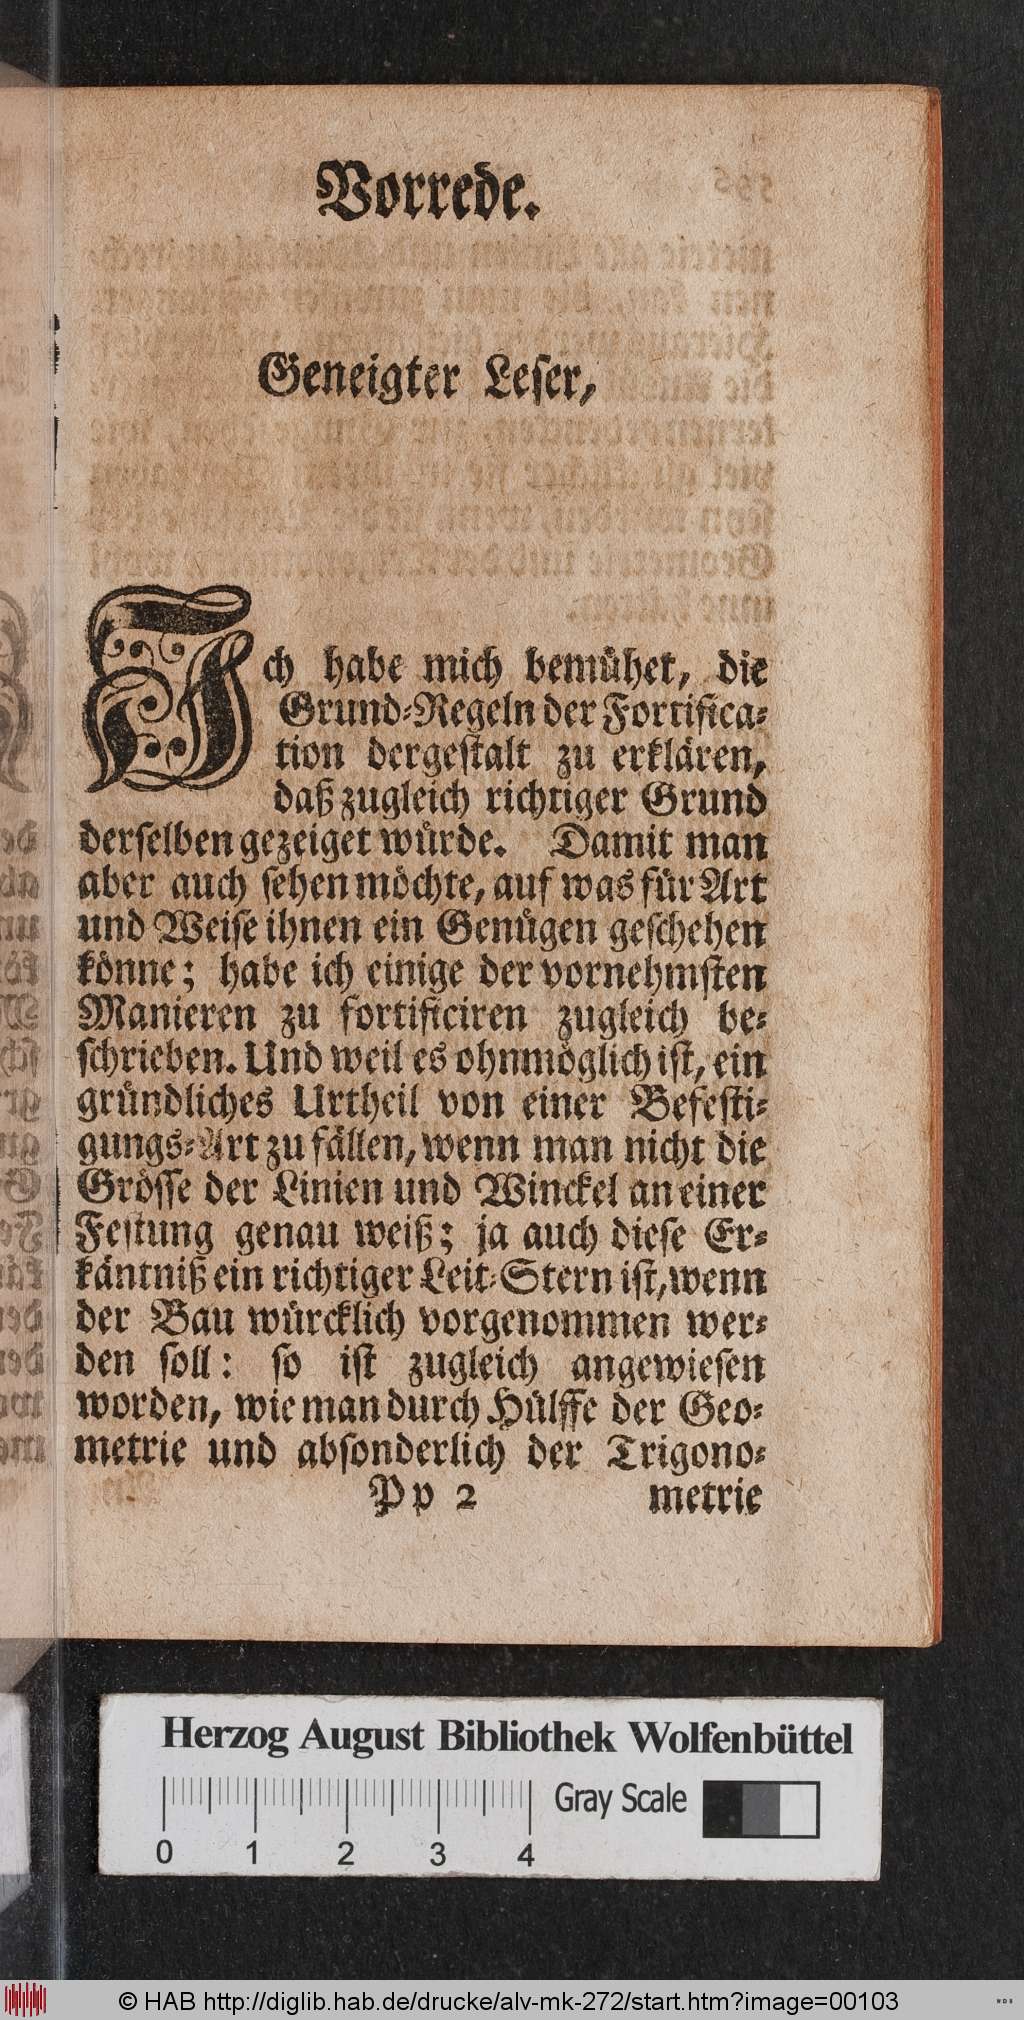 Vorrede.
Geneigter Leser,
Ich habe mich bemühet, die
Grund-Regeln der Fortifica-
tion dergestalt zu erklären,
daß zugleich richtiger Grund
derselben gezeiget würde. Damit man
aber auch sehen möchte, auf was für Art
und Weise ihnen ein Genügen geschehen
könne; habe ich einige der vornehmsten
Manieren zu fortificiren zugleich be-
schrieben. Und weil es ohnmöglich ist, ein
gründliches Urtheil von einer Befesti-
gungs-Art zu fällen, wenn man nicht die
Grösse der Linien und Winckel an einer
Festung genau weiß; ja auch diese Er-
käntniß ein richtiger Leit-Stern ist, wenn
der Bau würcklich vorgenommen wer-
den soll: so ist zugleich angewiesen
worden, wie man durch Hülffe der Geo-
metrie und absonderlich der Trigono-
Pp 2 metrie
Herzog August Bibliothek Wolfenbüttel
Gray Scale
0 1 2 3 4
© HAB http://diglib.hab.de/drucke/alv-mk-272/start.htm?image=00103